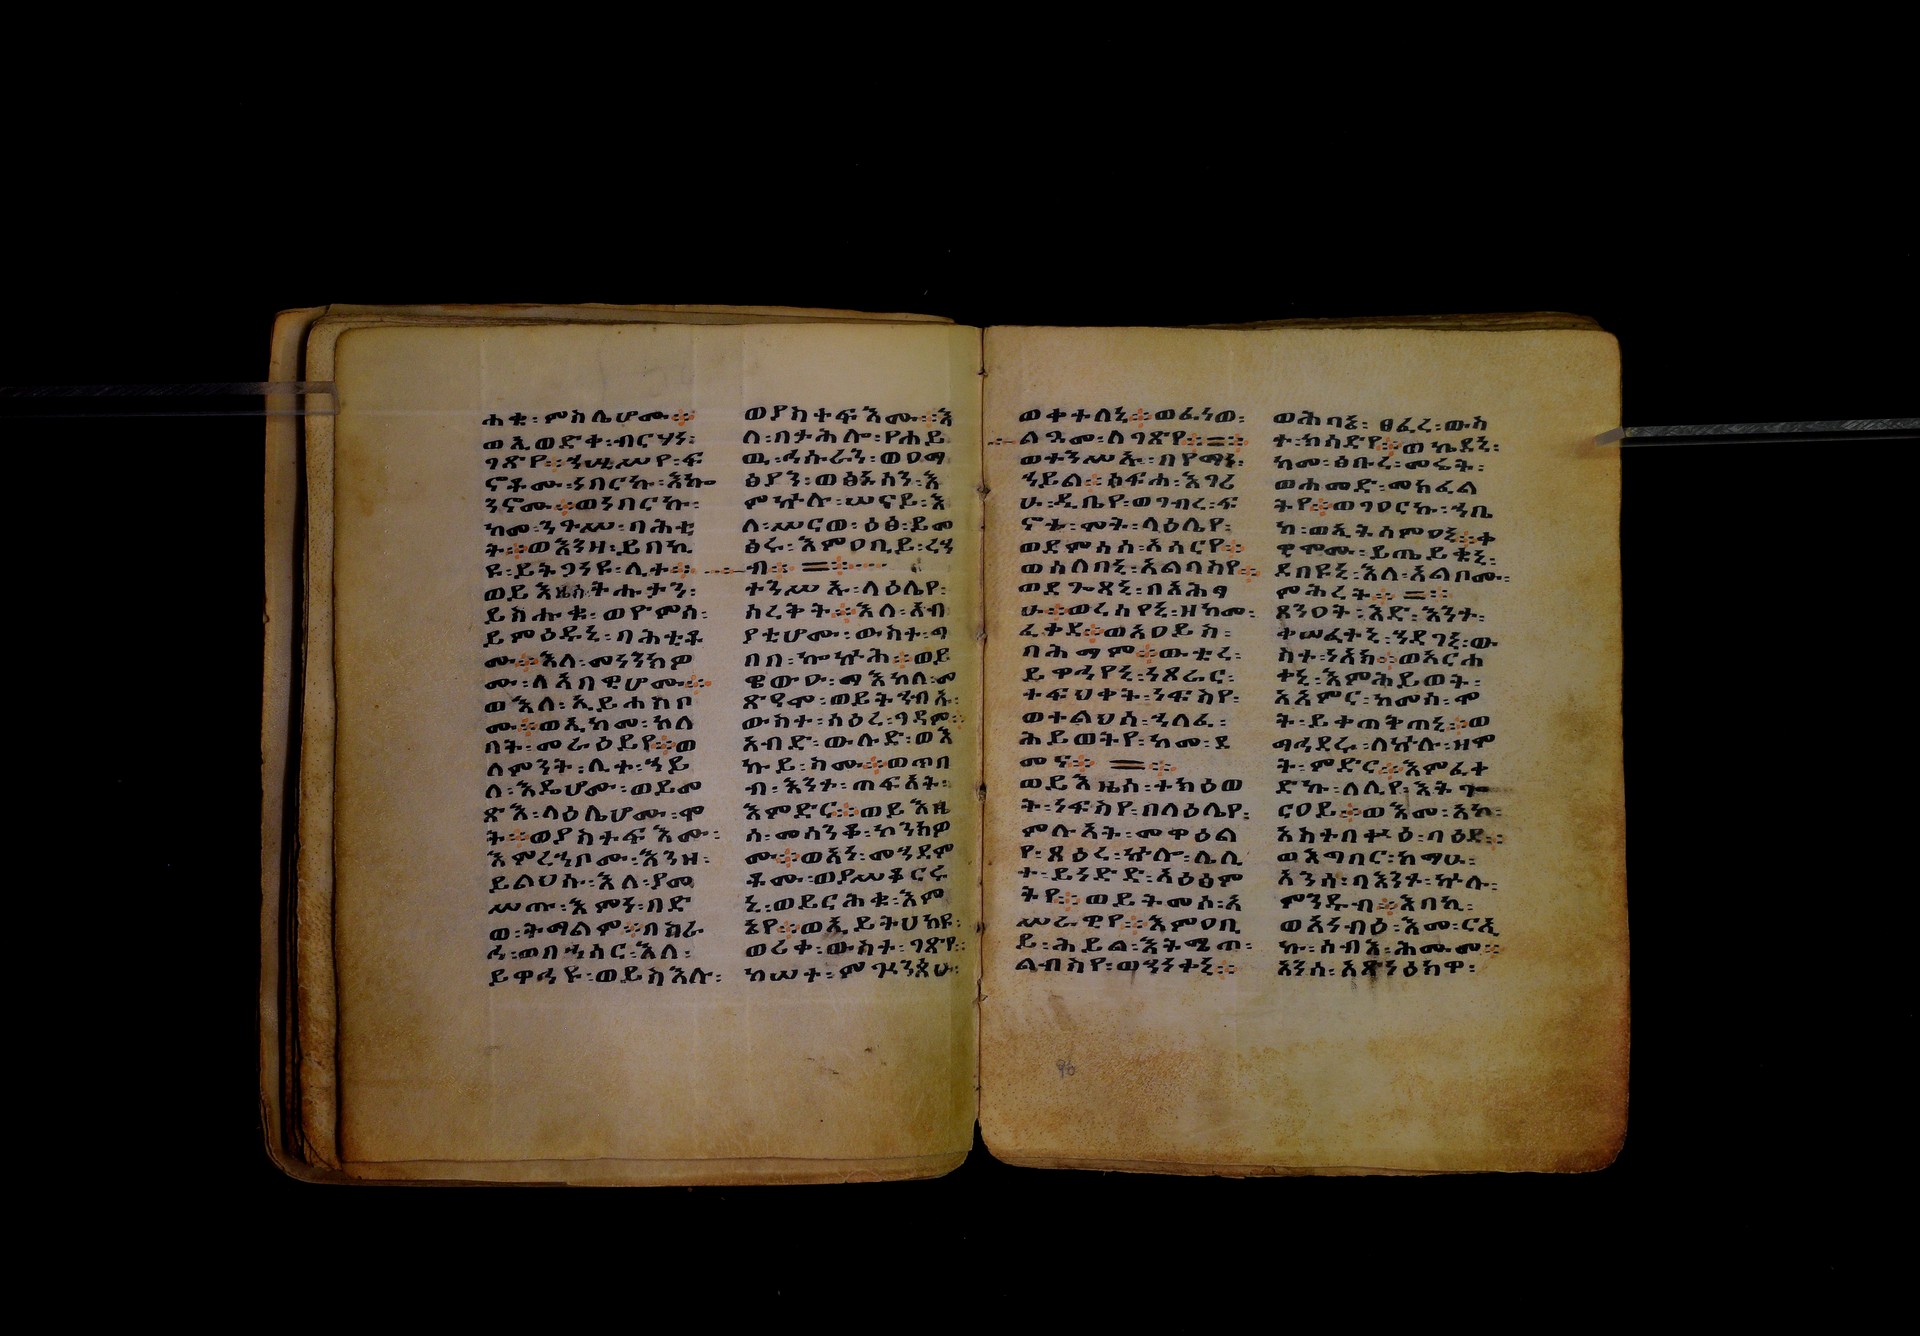 ሐቁ፡ምስሌሆሙ።
ወኢወድቀ፡ብርሃነ፡
ገጽየ።ኀሤሠየ፡ፍ
ኖቶሙ፡ነበርኩ፡እኩ
ንኖሙ።ወነበርኩ፡
ከመ፡ንጉሥ፡በሕቲ
ት።ወእንዘ፡ይበኪ
ዩ፡ይትጋነዩ፡ሊተ።
ወይእዜሰ፡ትሑታን፡
ይስሑቁ፡ወዮምሰ፡
ይምዕዱኒ፡በሕቲቶ
ሙ።እለ፡መነንክዎ
ሙ፡ለአበዊሆሙ።
ወእለ፡ኢይሐከቦ
ሙ።ወኢከመ፡ከለ
ባት፡መራዕይየ።ወ
ለምንት፡ሊተ፡ኀይ
ለ፡እዴሆሙ፡ወይመ
ጽእ፡ላዕሌሆሙ፡ሞ
ት።ወያስተፍእሙ፡
እምረኀቦሙ፡እንዘ፡
ይልህሱ፡እለ፡ያመ
ሠጡ፡እምኔ፡በድ
ው፡ትማልም።
እለ፡
ወይስእሉ፡
ወያስተፍእሙ።እ
ለ፡በታሕሎ፡የሐይ
ዉ፡ወዐማ
ፅያን፡ወፅኑሳን፡እ
ምኵሉ፡ሠናይ፡እ
ለ፡ሥርወ፡ዕፅ፡ይመ
ፅሩ፡እምዐቢይ፡ረኃ
ብ።
ተንሥኡ፡ላዕሌየ፡
ሰረቅት።እለ፡አብ
ያቲሆሙ፡ውስተ፡ግ
በበ፡ኰኵሕ።ወይ
ዌውዑ፡ማእከለ፡መ
ጽያሞ፡
ውስተ፡ሐዕረ፡ገዳም።
አብድ፡ውሉድ፡ወእ
ኩይ፡ስሙ።ወጥበ
ብ፡እንተ፡ጠፍአት፡
እምድር።ወይእዜ
ሰ፡መሰንቆ፡ኮንክዎ
ሙ።ወአነ፡መኃደም
ቶሙ፡ወያሠቆርሩ
ኒ፡ወይርሕቁ፡እም
ኔየ።ወኢይትሀከዩ፡
ወሪቀ፡ውስተ፡ገጽየ።
ከሠተ፡ምጒንጳሁ፡
ወቀተለኒ።ወፈነወ፡
ልጓመ፡ለገጽየ።
ወተንሥኡ፡በየማነ፡
ኀይል፡ፅፍሐ፡እገሪ
ሁ፡ዲቤየ፡ወገብረ፡ፍ
ኖቱ፡ሞት፡ላዕሌየ፡
ወደምሰሰ፡አሰርየ።
ወሰለበኒ፡አልባስየ።
ወደጐጸኒ፡በአሕፃ
ሁ።ወረሰየኒ፡ዘከመ፡
ፈቀደ።ወአዐይከ፡
በሕማም።ውቲረ፡
ይዋሓየኒ፡ነጸራር፡
ተፍህቀት፡ነፍስየ፡
ወተልህሰ፡ኃለፈ፡
ሕይወትየ፡ከመ፡ደ
መና።
ወይእዜሰ፡ተክዕወ
ት፡ነፍስየ፡በላዕሌየ፡
ምሉአት፡መዋዕል
የ፡ጸዕረ፡ኵሎ፡ሌሊ
ተ፡ይነድድ፡አዕፅም
ትየ።ወይትመሰ፡አ
ሥራዊየ።እምዐቢ
ይ፡ሕይል፡እትሜጠ፡
ልብስየ፡ወኀነቀኒ።
ወሕባኔ፡ፀፈረ፡ውስ
ተ፡ክሳድየ።ወኬደኒ፡
ከመ፡ፅቡረ፡መሬት፡
ወሐመድ፡መክፈል
ትየ።ወገዐርኩ፡ኀቤ
ከ፡ወኢትሰምዐኒ።ቀ
ዊሞሙ፡ይጤይቁኒ፡
ደበዩኒ፡እለ፡አልቦሙ፡
ምሕረት።
ጸንዐት፡እድ፡እንተ፡
ቀሠፈተኒ፡ኀደገኒ፡ው
ስተ፡ነአክ።ወአርሐ
ቀኒ፡እምሕይወት፡
አአምር፡ከመሰ፡ሞ
ት፡ይቀጠቅጠኒ።ወ
ማኅደሩ፡ለኵሉ፡ዘሞ
ት፡ምድር።እምፈቀ
ድኩ፡ለሊየ፡እትጐ
ርዐይ።ወእመ፡አኮ፡
አስተበቍዕ፡ባዕደ።
ወእግበር፡ከማሁ፡
አንሰ፡ባእንተ፡ኵሉ፡
ምንዱብ።እበኪ፡
ወእነብዕ፡እመ፡ርኢ
ኩ፡ሰብአ፡ሕሙመ።
አንሰ፡እጽንዕክዎ፡
96